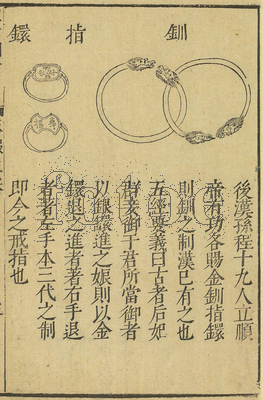 釧　指鐶
後漢孫程十九人立順
帝有功各賜金釧指鐶
則釧之制漢已有之也
五經要義曰古者后妃
羣妾御于君所當御者
以銀鐶進之娠則以金
鐶退之進者著右手退
者著左手本三代之制
即今之戒指也